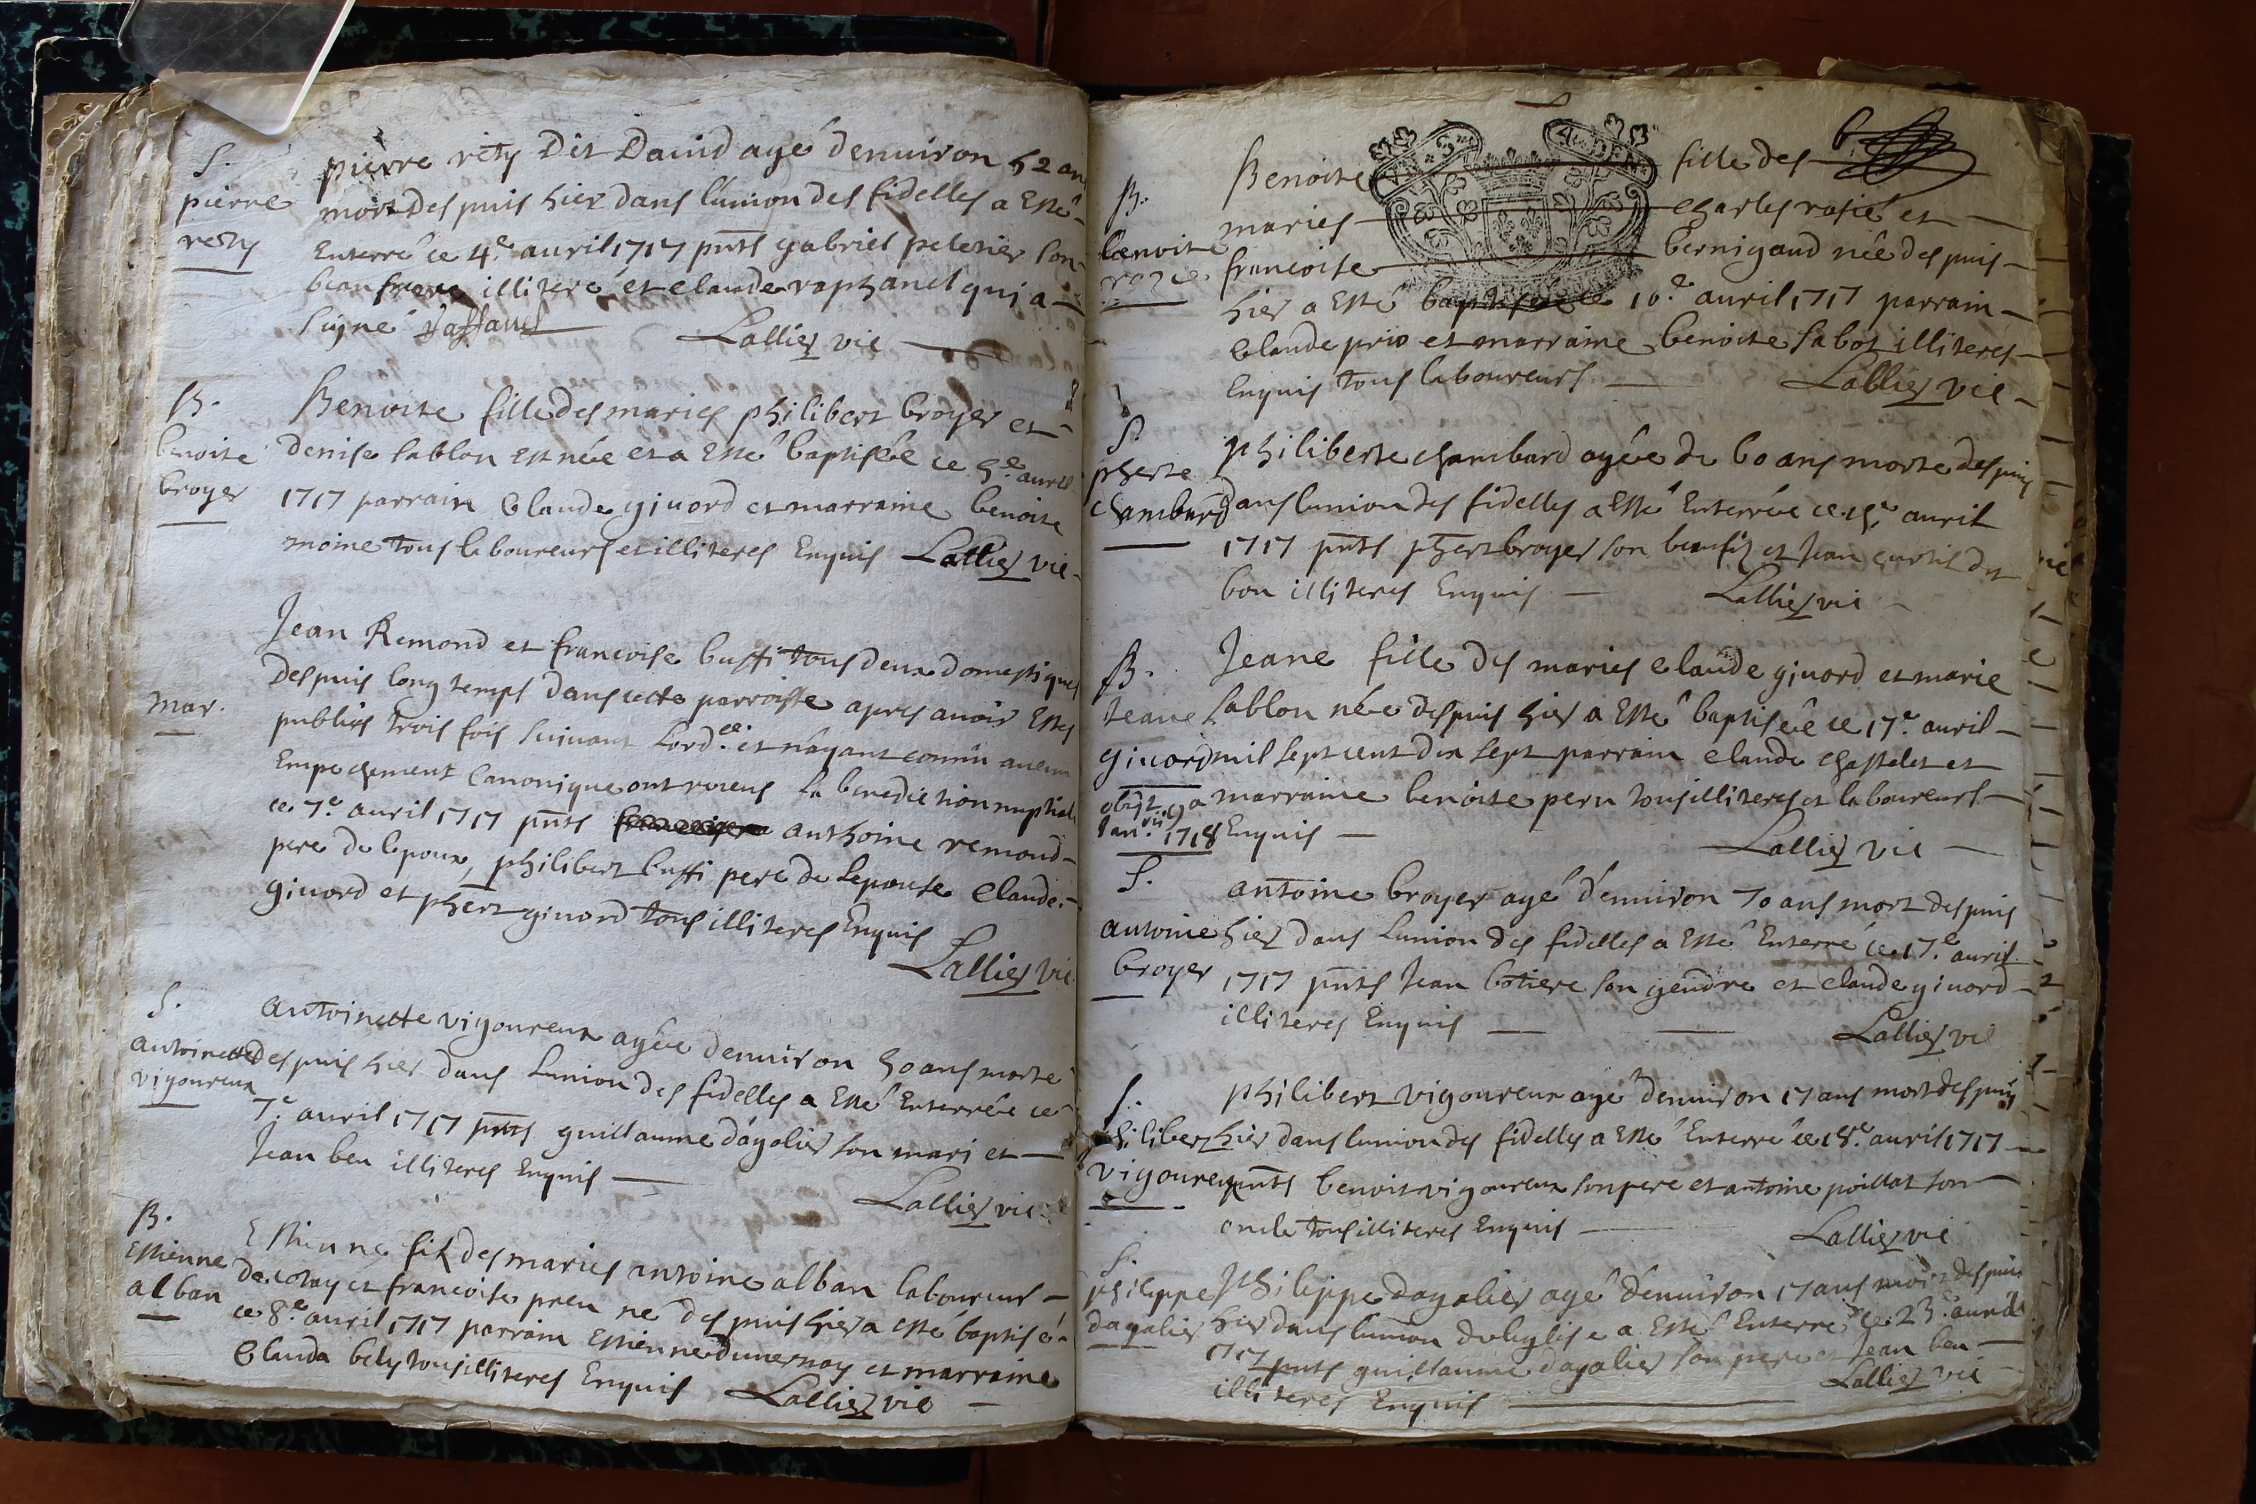 S.
pierre
rety
pierre rety Dit David agé denuiron 52 an
mort despuis hier dans lunion des fidelles a Esté
Enterré ce 4.e auril 1717 pnts gabriel peletier son
beaufrere illiteré et claude raphanel qui a
signé Lallier vic
B.
benoite
broyer
Benoite fille des maries philibert broyer et
denise sablon est née et a Esté baptisée ce 5.e auril
1717 parrain Claude giuord et marraine benoite
moine tous laboureurs et illiteres Enquis Lallier vic
mar.
Jean Remond et francoise buffi tous deux domestiques
despuis long temps dans cette parroisse apres auoir Estes
publiés trois fois suiuant lord.ce et nayant connû aucun
Empechement Canonique ont receus la benediction nuptial
ce 7.e auril 1717 pnts anthoine remond
pere de lepoux, philibert buffi pere de lepouse Claude
giuord et phert giuord tous illiteres Enquis
Lallier vic
S.
antoinette
vigoureux
antoinette vigoureux agée denuiron 50 ans morte
despuis hier dans lunion des fidelles a Esté Enterrée ce
7.e auril 1717 pnts guillaume dagalier son mari et
Jean beu illiteres Enquis
Lallier vic
B.
Estienne
alban
Estienne fils des maries antoine alban laboureur
de et francoise preu né despuis hier a esté baptisé
ce 8.e auril 1717 parrain Estienne dunernay et marraine
Clauda bely tous illiteres Enquis Lallier vic
B.
benoite
rozie
Benoite fille des
maries charles rosié et
francoise bernigaud née despuis
hier a Esté baptisée ce 10.e auril 1717 parrain
Claude prio et marraine benoite sabot illiteres
Enquis tous laboureurs Lallier vic
S.
pherte
chambard
philiberte chambard agée de 60 ans morte despuis
dans lunion des fidelles a Esté Enterrée ce 15.e auril
1717 pnts phert broyer son beaufiz et Jean curtil dit
bon illiteres Enquis Lallier vic
B.
Jeane
giuord
obijt 9a
Jan.vii 1718
Jeane fille des maries claude giuord et marie
sablon née despuis hier a Esté baptisée ce 17.e auril
mil sept cent dix sept parrain claude chastelet et
marraine benoite peru tous illiteres et laboureurs
Enquis
Lallier vic
S.
antoine
broyer
antoine broyer agé denuiron 70 ans mort despuis
hier dans lunion des fidelles a Esté Enterré ce 17.e auril
1717 pnts Jean botiere son gendre et claude giuord
illiteres Enquis Lallier vic
S.
philibert
vigoureux
philibert vigoureux agé denuiron 17 ans mort despuis
hier dans lunion des fidelles a Esté Enterré ce 18.e auril 1717
pnts benoit vigoureux son pere et antoine poillat son
oncle tous illiteres Enquis
Lallier vic
S.
philippe
dagalier
philippe dagalier agé denuiron 17 ans mort despuis
hier dans lunion de leglise a Esté Enterré ce 23.e auril
1717 pnts guillaume dagalier son pere et Jean beu
illiteres Enquis Lallier vic